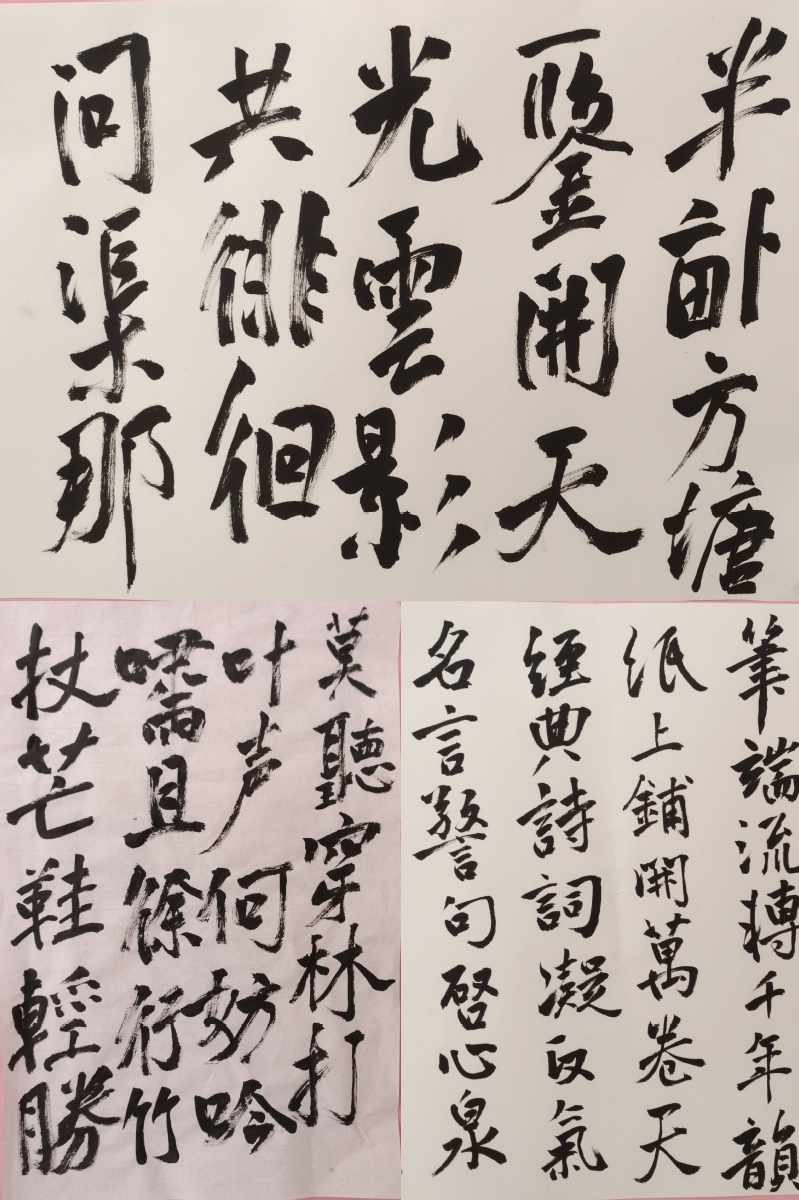 半畝方塘
一鑒開天
光雲影
共徘徊
問渠那
莫聽穿林打
叶声何妨吟
嘯且徐行竹
杖芒鞋輕勝
筆端流轉千年韻
紙上鋪開萬卷天
經典詩詞凝正氣
名言警句啓心泉